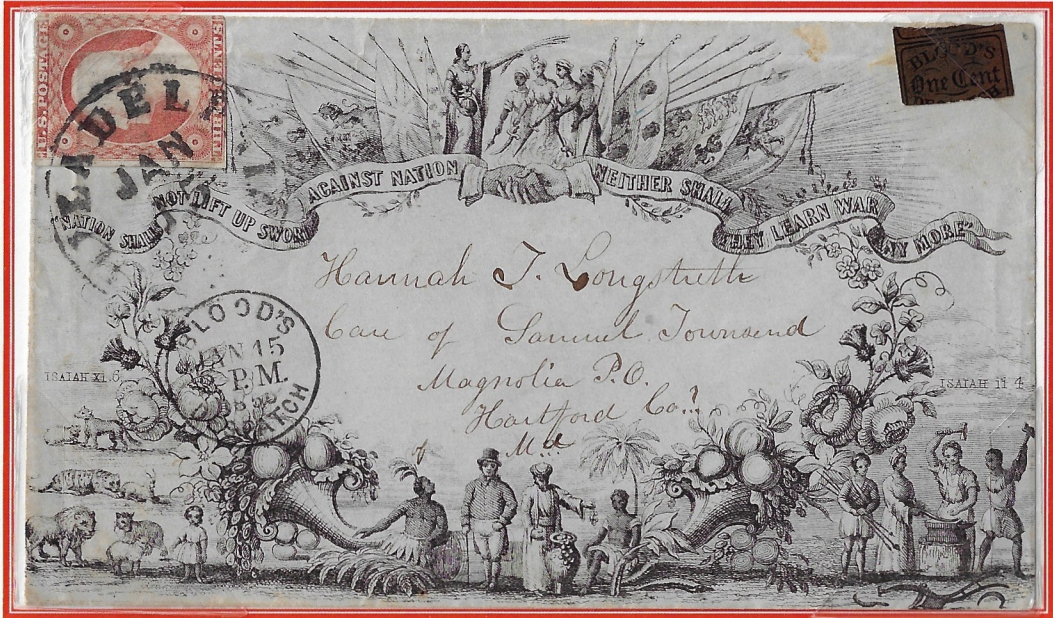 U.S. POSTAGE
THREE CENTS
BLOOD'S
One Cent
DELADEL
JAN
"NATION SHALL NOT LIFT UP SWORD AGAINST NATION NEITHER SHALL THEY LEARN WAR ANY MORE"
Hannah J. Longstreth
Care of Samuel Townsend
Magnolia P.O.
Hartford Co.
Md.
BLOOD'S
JAN 15
P.M.
ISAIAH XI. 6
ISAIAH 11 4